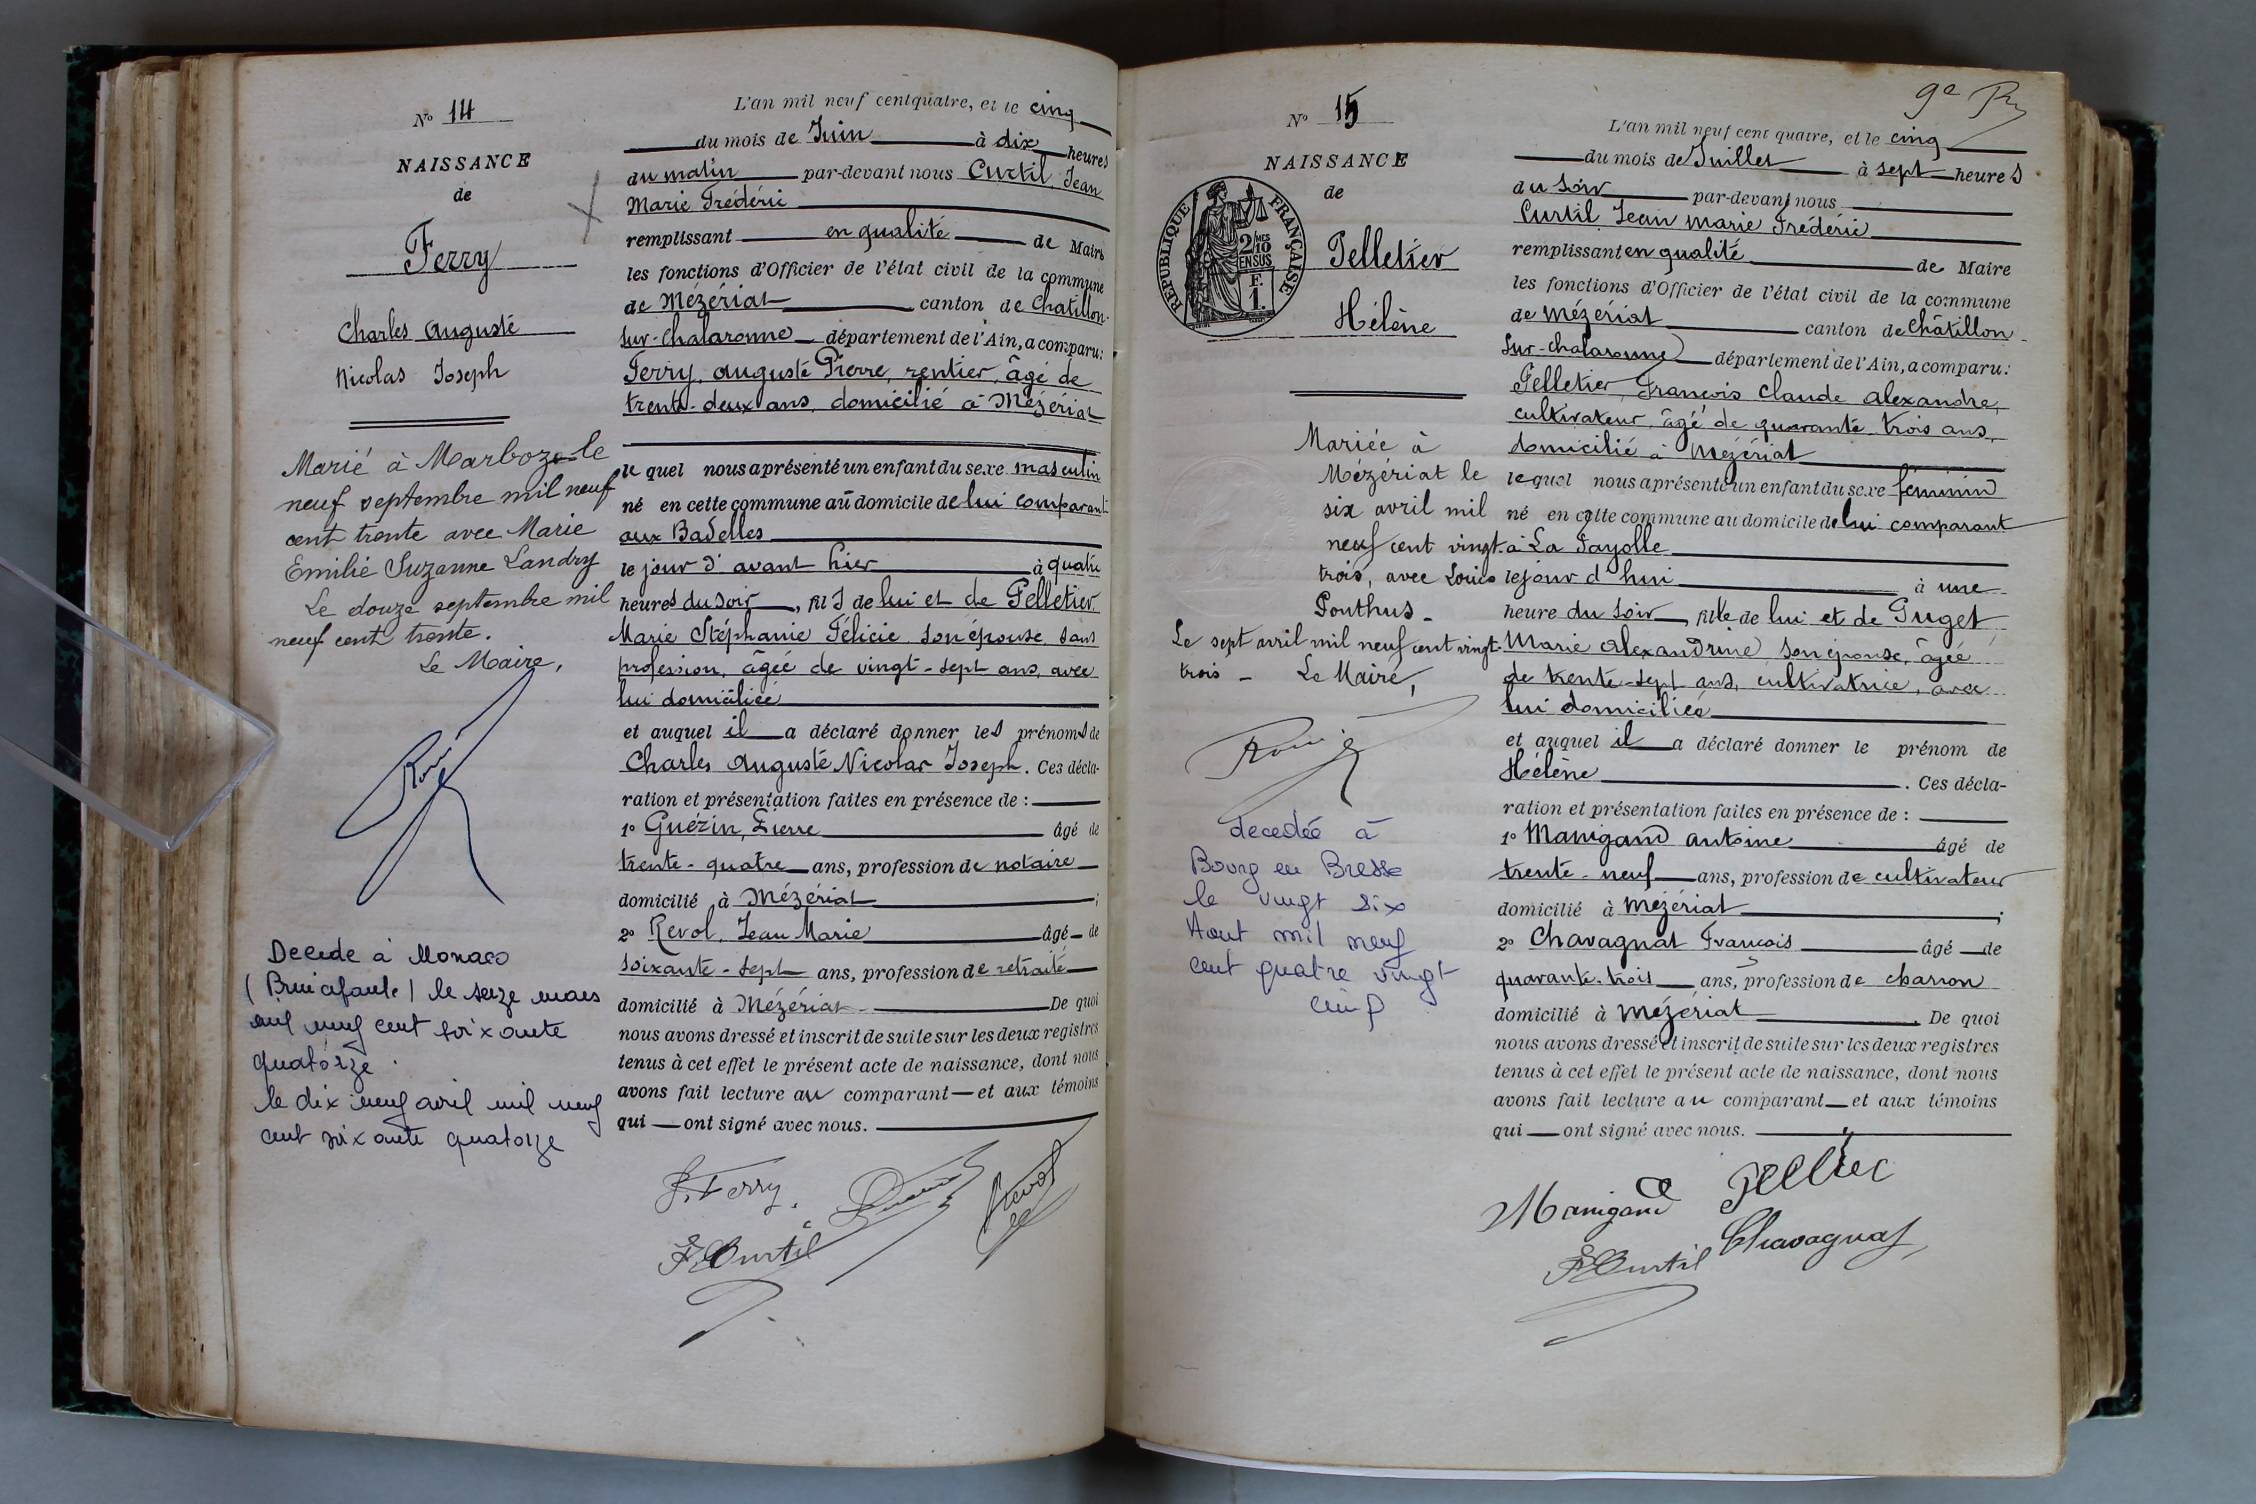 N° 14
NAISSANCE
de
Ferry
Charles Auguste
Nicolas Joseph
Marié à Marboz le
neuf septembre mil neuf
cent trente avec Marie
Emilie Suzanne Landry
Le douze septembre mil
neuf cent trente.
Le Maire,
Décédé à Monaco
(Principauté) le seize mars
mil neuf cent soixante
quatorze.
le dix neuf avril mil neuf
cent soixante quatorze
L'an mil neuf cent quatre, et le cinq
du mois de Juin à dix heures
du matin par-devant nous Curtil, Jean
Marie Frédéric
remplissant en qualité de Maire
les fonctions d'Officier de l'état civil de la commune
de Mézériat canton de Chatillon-
sur-Chalaronne département de l'Ain, a comparu:
Ferry, Auguste Pierre, rentier, âgé de
trente-deux ans, domicilié à Mézériat
le quel nous a présenté un enfant du sexe masculin
né en cette commune au domicile de lui comparant
aux Badelles
le jour d'avant hier à quatre
heures du soir, fils de lui et de Pelletier
Marie Stéphanie Félicie, son épouse, sans
profession, âgée de vingt-sept ans, avec
lui domiciliée
et auquel il a déclaré donner les prénoms de
Charles Auguste Nicolas Joseph. Ces décla-
ration et présentation faites en présence de :
1° Guézin, Pierre âgé de
trente-quatre ans, profession de notaire
domicilié à Mézériat ;
2° Revol, Jean Marie âgé de
soixante-sept ans, profession de retraité
domicilié à Mézériat. De quoi
nous avons dressé et inscrit de suite sur les deux registres
tenus à cet effet le présent acte de naissance, dont nous
avons fait lecture au comparant et aux témoins
qui ont signé avec nous.
Ferry
Revol
F. Curtil
9e
N° 15
NAISSANCE
de
RÉPUBLIQUE FRANÇAISE
2/10 MES
EN SUS
F.
1.
Pelletier
Hélène
Mariée à
Mézériat le
six avril mil
neuf cent vingt-
trois, avec Louis
Ponthus -
Le sept avril mil neuf cent vingt-
trois - Le Maire,
decedée à
Bourg en Bresse
le vingt six
Aout mil neuf
cent quatre vingt
cinq
L'an mil neuf cent quatre, et le cinq
du mois de Juillet à sept heures
du soir par-devant nous
Curtil Jean Marie Frédéric
remplissant en qualité de Maire
les fonctions d'Officier de l'état civil de la commune
de Mézériat canton de Châtillon-
sur-Chalaronne département de l'Ain, a comparu:
Pelletier, François Claude Alexandre,
cultivateur, âgé de quarante-trois ans,
domicilié à Mézériat
lequel nous a présenté un enfant du sexe féminin
né en cette commune au domicile de lui comparant
à La Fayolle
le jour d'hui à une
heure du soir, fille de lui et de Puget
Marie Alexandrine son épouse, âgée
de trente-sept ans, cultivatrice, avec
lui domiciliée
et auquel il a déclaré donner le prénom de
Hélène. Ces décla-
ration et présentation faites en présence de :
1° Manigand Antoine âgé de
trente-neuf ans, profession de cultivateur
domicilié à Mézériat ;
2° Chavagnat François âgé de
quarante-trois ans, profession de charron
domicilié à Mézériat. De quoi
nous avons dressé et inscrit de suite sur les deux registres
tenus à cet effet le présent acte de naissance, dont nous
avons fait lecture au comparant et aux témoins
qui ont signé avec nous.
Manigand
Chavagnat
F. Curtil